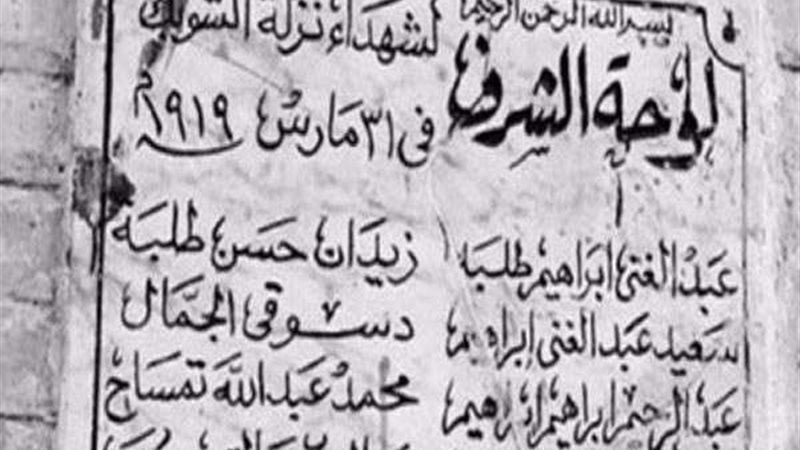 بسم الله الرحمن الرحيم
لوحة الشرف
لشهداء نزلة الشوبك
فى ٣١ مارس ١٩١٩م
عبد الغنى ابراهيم طلبه
سعيد عبد الغنى إبراهيم
عبد الرحيم ابراهيم ابراهيم
زيدان حسن طلبة
دسوقى الجمال
محمد عبد الله تمساح